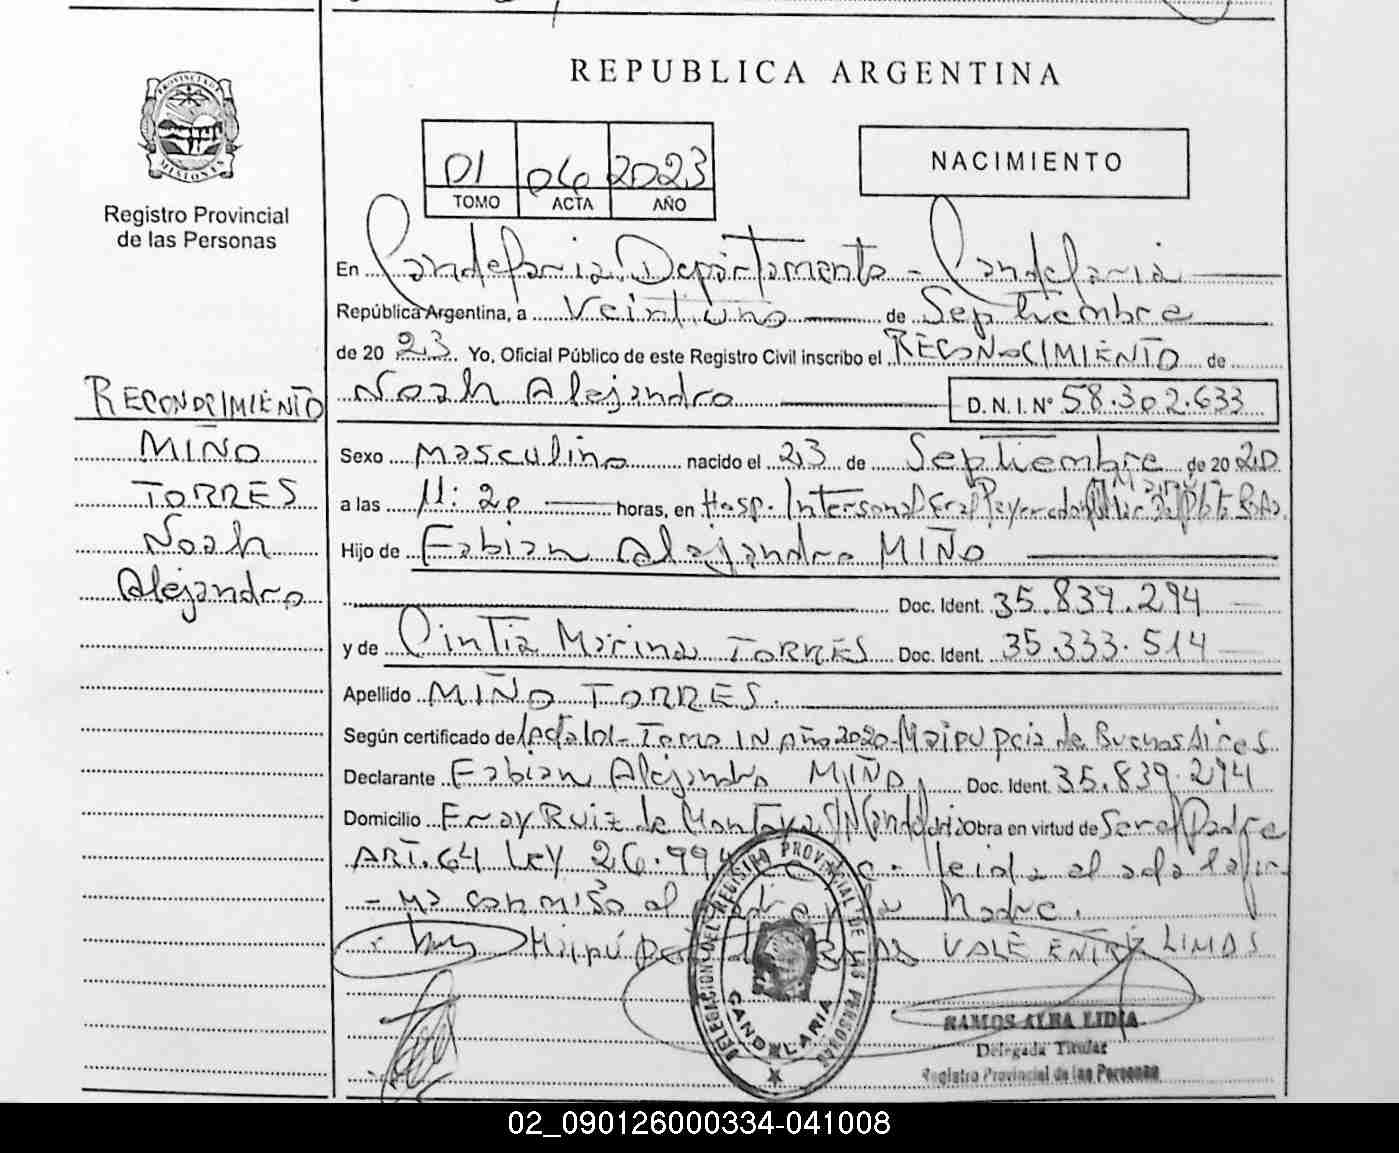 REPUBLICA ARGENTINA
PROVINCIA DE
MISIONES
Registro Provincial
de las Personas
01 06 2023
TOMO ACTA AÑO
NACIMIENTO
En Candelaria Departamento - Candelaria
República Argentina, a Veintiuno de Septiembre
de 20 23. Yo, Oficial Público de este Registro Civil inscribo el RECONOCIMIENTO de
Noah Alejandro D.N.I.Nº 58.302.633
RECONOCIMIENTO
MIÑO
TORRES
Noah
Alejandro
Sexo Masculino nacido el 23 de Septiembre de 20 20
a las 11:20 horas, en Hosp.
Hijo de Fabian Alejandro MIÑO
Doc. Ident. 35.839.294
y de Cintia Marina TORRES Doc. Ident. 35.333.514
Apellido MIÑO TORRES.
Según certificado de Acta 101 - Tomo 1N Año 2020 - Maipu pcia de Buenos Aires
Declarante Fabian Alejandro MIÑO Doc. Ident. 35.839.294
Domicilio Fray Ruiz de Montoya S/N Candelaria Obra en virtud de Ser el Padre
ART. 64 Ley 26.994 - leida el acta la fir-
- ma conmigo el Madre.
Maipú VALE ENTRE LINEAS
DELEGACION DEL REGISTRO PROVINCIAL DE LAS PERSONAS
CANDELARIA
RAMOS ALBA LIDIA
Delegada Titular
Registro Provincial de las Personas
02_090126000334-041008